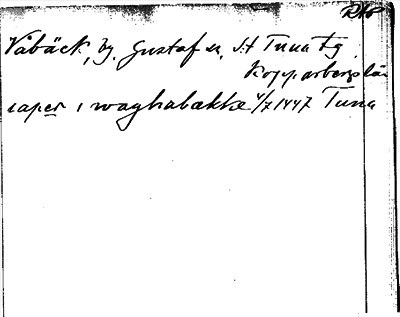 RAP
Våbäck, by, Gustafs sn, St Tuna tg
Kopparbergs län
iaper i waghabække 4/7 1447 Tuna